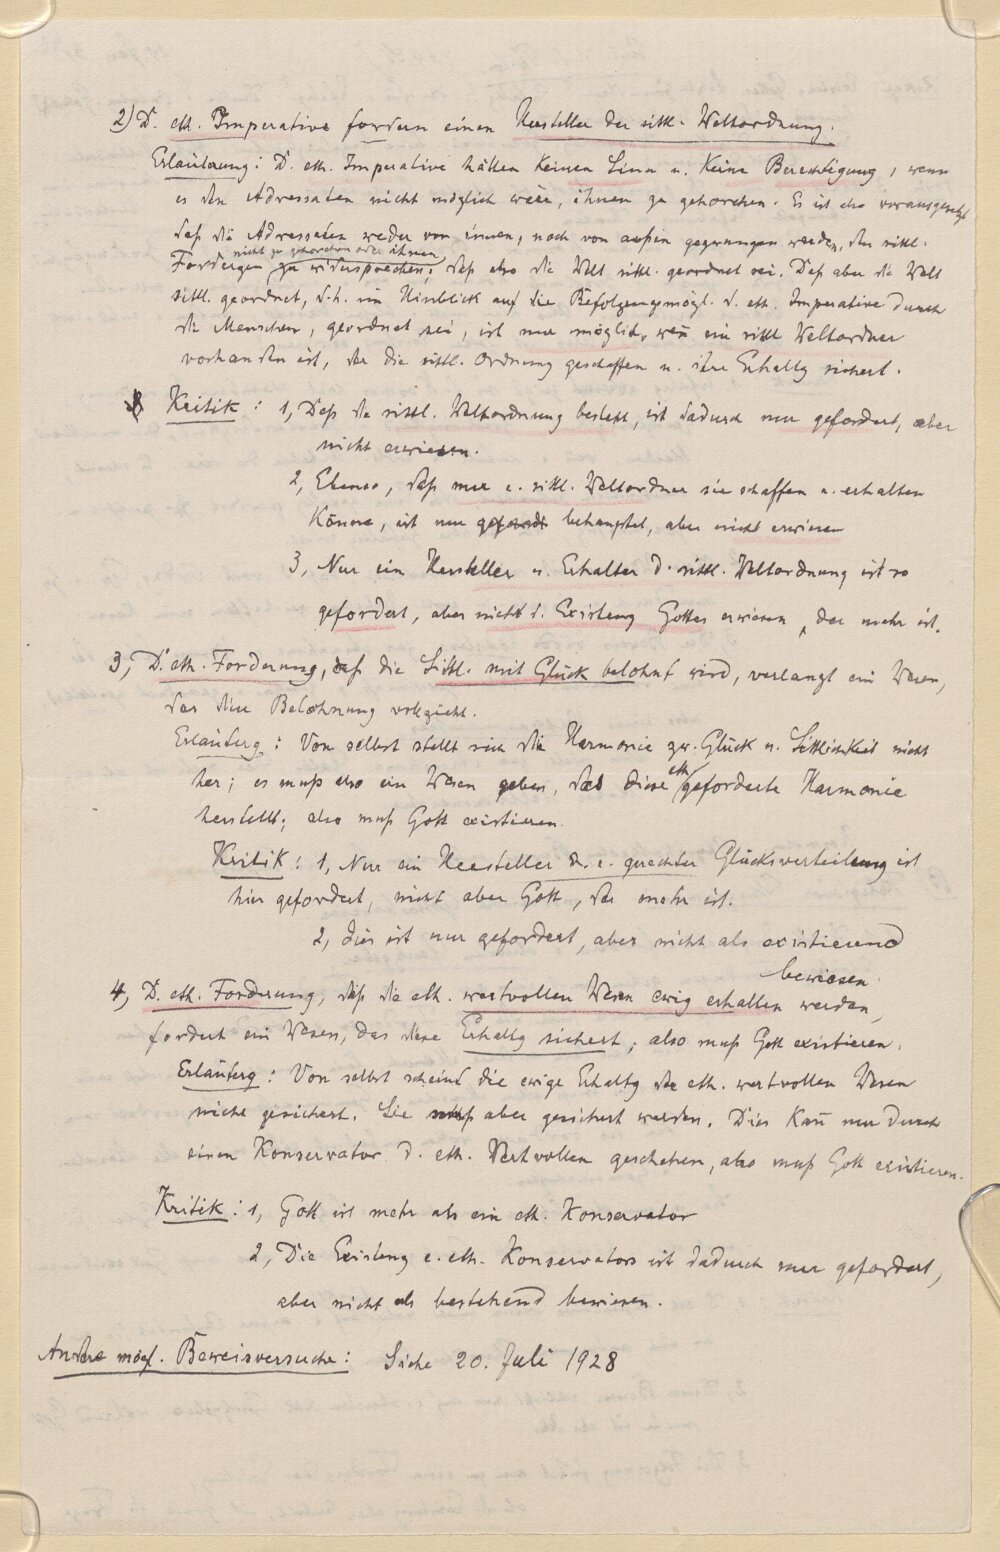 2) D. eth. Imperative fordern einen Hersteller der sittl. Weltordnung.
Erläuterung: D. eth. Imperative hätten keinen Sinn u. keine Berechtigung, wenn
es den Adressaten nicht möglich wäre, ihnen zu gehorchen. Es ist also vorausgesetzt,
daß die Adressaten weder von innen, noch von außen gezwungen werden, den sittl.
nicht zu gehorchen oder ihnen
Fordergen zu widersprechen; daß also die Welt sittl. geordnet sei. Daß aber die Welt
sittl. geordnet, d.h. im Hinblick auf die Befolgungsmögl. d. eth. Imperative durch
die Menschen, geordnet sei, ist nur möglich, wen̄ ein sittl. Weltordner
vorhanden ist, der die sittl. Ordnung geschaffen u. ihre Erhaltg sichert.
Kritik: 1, Daß die sittl. Weltordnung besteht, ist dadurch nur gefordert, aber
nicht erwiesen.
2, Ebenso, daß nur e. sittl. Weltordner sie schaffen u. erhalten
könne, ist nur behauptet, aber nicht erwiesen
3, Nur ein Hersteller u. Erhalter d. sittl. Weltordnung ist so
gefordert, aber nicht d. Existenz Gottes erwiesen, der mehr ist.
3, D. eth. Forderung, daß die Sittl. mit Glück belohnt wird, verlangt ein Wesen,
das diese Belohnung vollzieht.
Erläuterg: Von selbst stellt sich die Harmonie zw. Glück u. Sittlichkeit nicht
her; es muß also ein Wesen geben, das diese eth. geforderte Harmonie
herstellt; also muß Gott existieren.
Kritik: 1, Nur ein Hersteller d. e. gerechter Glücksverteilung ist
hier gefordert, nicht aber Gott, der mehr ist.
2, dies ist nur gefordert, aber nicht als existierend
bewiesen.
4, D. eth. Forderung, daß die eth. wertvollen Wesen ewig erhalten werden,
fordert ein Wesen, das diese Erhaltg sichert; also muß Gott existieren.
Erläuterg: Von selbst scheint die ewige Erhaltg der eth. wertvollen Wesen
nicht gesichert. Sie muß aber gesichert werden. Dies kan̄ nur durch
einen Konservator d. eth. Wertvollen geschehen, also muß Gott existieren.
Kritik: 1, Gott ist mehr als ein eth. Konservator
2, Die Existenz e. eth. Konservators ist dadurch nur gefordert,
aber nicht als bestehend bewiesen.
Andere mögl. Beweisversuche: Siehe 20. Juli 1928